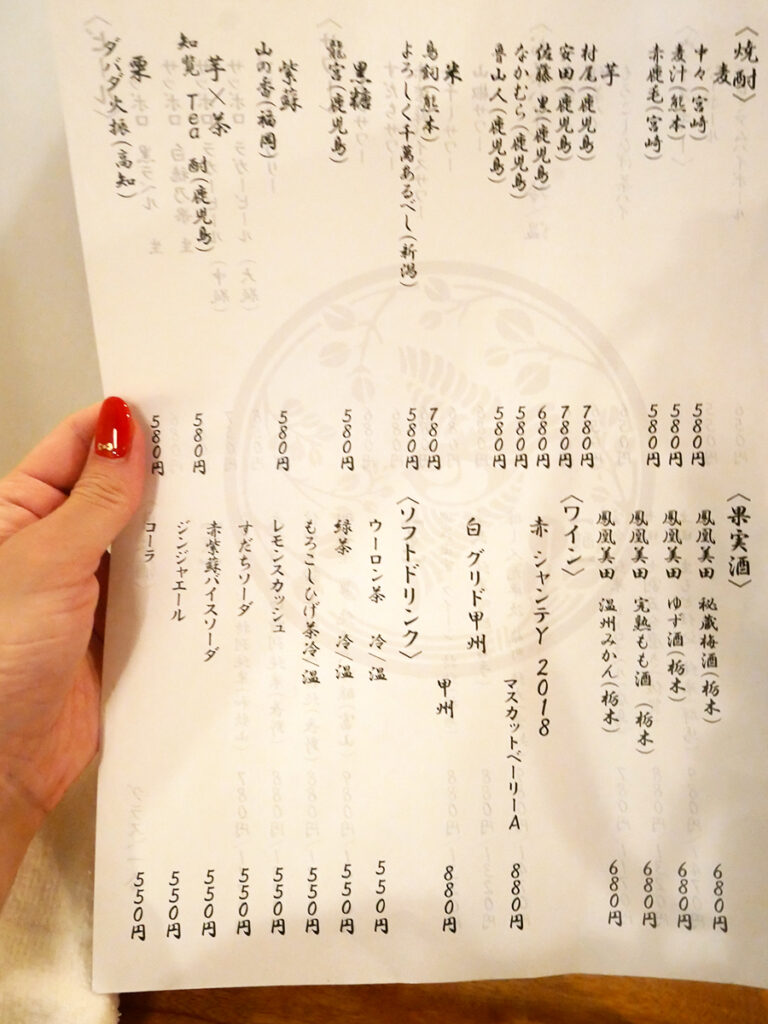 〈焼酎〉
麦
中々(宮崎) 580円
麦汁(熊本) 580円
赤鹿毛(宮崎) 580円
芋
村尾(鹿児島) 780円
安田(鹿児島) 780円
佐藤 黒(鹿児島) 680円
なかむら(鹿児島) 580円
魯山人(鹿児島) 580円
米
鳥飼(熊本) 780円
よろしく千萬あるべし(新潟) 580円
黒糖
龍宮(鹿児島) 580円
紫蘇
山の香(福岡) 580円
芋×茶
知覧 Tea 酎(鹿児島) 580円
栗
ダバダ火振(高知) 580円
〈果実酒〉
鳳凰美田 秘蔵梅酒(栃木) 680円
鳳凰美田 ゆず酒(栃木) 680円
鳳凰美田 完熟もも酒(栃木) 680円
鳳凰美田 温州みかん(栃木) 680円
〈ワイン〉
赤 シャンテY 2018
マスカットベーリーA 880円
白 グリド甲州
甲州 880円
〈ソフトドリンク〉
ウーロン茶 冷/温 550円
緑茶 冷/温 550円
もろこしひげ茶冷/温 550円
レモンスカッシュ 550円
すだちソーダ 550円
赤紫蘇バイスソーダ 550円
ジンジャエール 550円
コーラ 550円